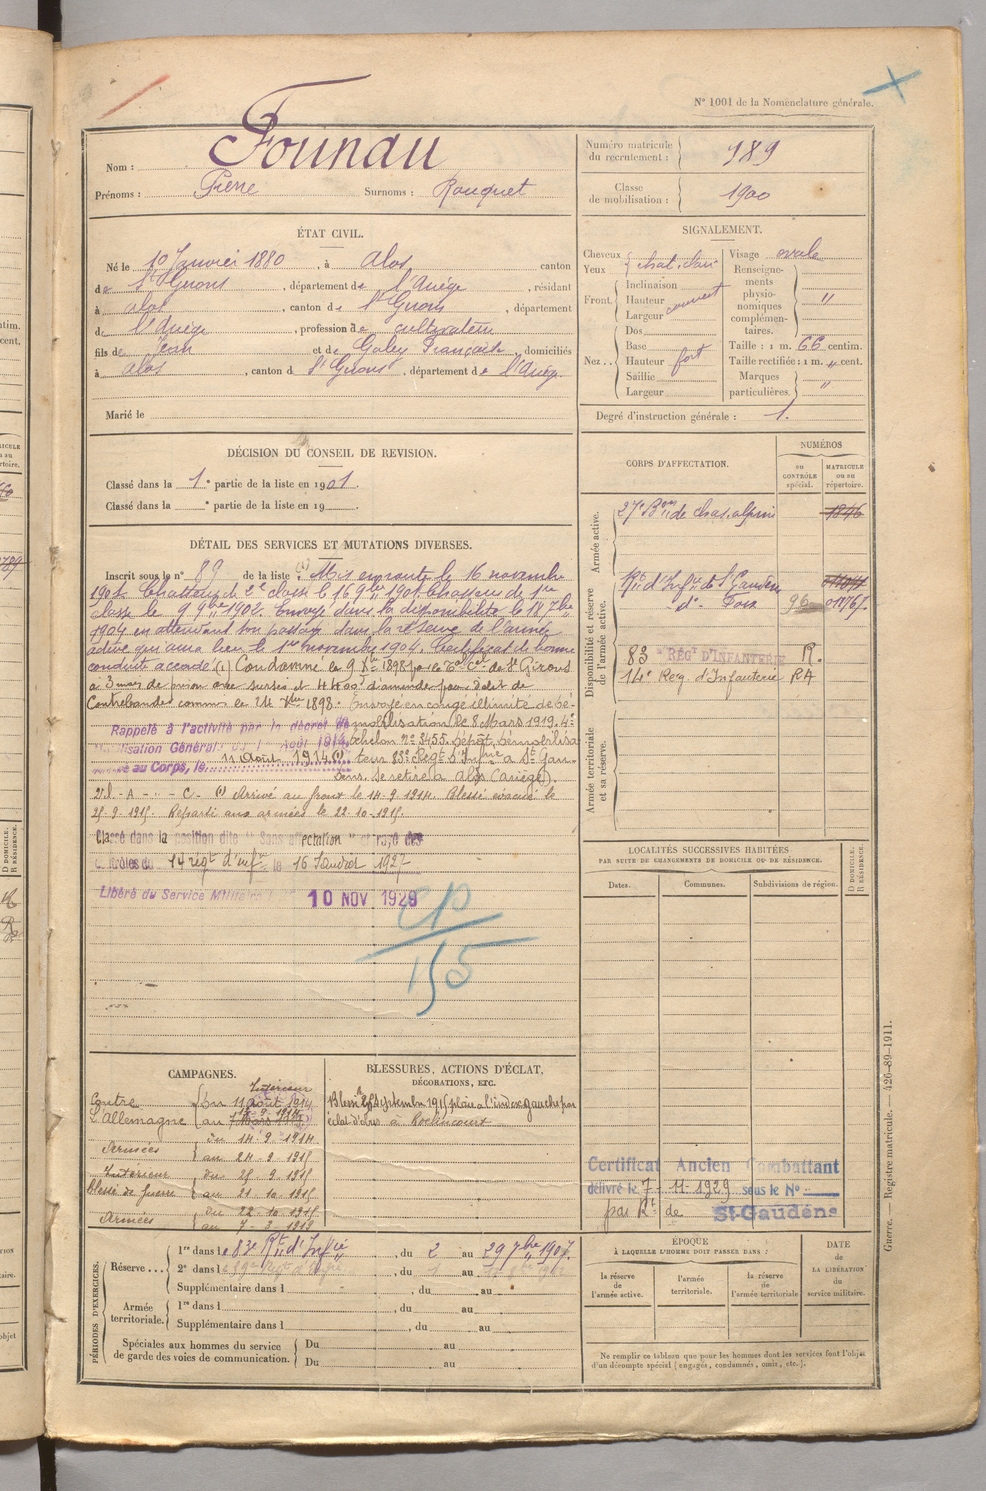 N° 1001 de la Nomenclature générale.
Nom : Founau
Prénoms : Pierre Surnoms : Rouquet
Numéro matricule du recrutement : 989
Classe de mobilisation : 1900
ÉTAT CIVIL.
Né le 10 Janvier 1880, à Alos canton
de St Girons, département de l'Ariège, résidant
à Alos, canton de St Girons, département
de l'Ariège, profession de cultivateur
fils de Jean et de Galey Françoise, domiciliés
à Alos, canton d St Girons, département de l'Ariège.
Marié le
SIGNALEMENT.
Cheveux
Yeux
chat. clair
Front
Inclinaison
Hauteur
Largeur
couvert
Nez
Dos
Base
Hauteur
Saillie
Largeur
fort
Visage ovale
Renseignements physionomiques complémentaires. "
Taille : 1 m. 66 centim.
Taille rectifiée : 1 m. " cent.
Marques particulières. "
Degré d'instruction générale : 1.
DÉCISION DU CONSEIL DE REVISION.
Classé dans la 1e partie de la liste en 1901.
Classé dans la e partie de la liste en 19
CORPS D'AFFECTATION.
NUMÉROS
au CONTRÔLE spécial.
MATRICULE ou au répertoire.
Armée active.
27e Bon de chas. alpins 1846
Disponibilité et réserve de l'armée active.
Rt d'Infie de St Gaudens
do Foix 96 01176
83e RÉGt D'INFANTERIE R.
14e Reg. d'Infanterie RA
Armée territoriale et sa réserve.
DÉTAIL DES SERVICES ET MUTATIONS DIVERSES.
Inscrit sous le n° 89 de la liste (1) Mis en route le 16 novembre
1901. Chasseur de 2e classe le 16 9bre 1901. Chasseur de 1re
classe le 9 9bre 1902. Envoyé dans la disponibilité le 18 7bre
1904 en attendant son passage dans la réserve de l'armée
active qui aura lieu le 1er novembre 1904. Certificat de bonne
conduite accordé. (1) Condamné le 9 par le Tal Cel de St Girons
à 3 mois de prison avec sursis et d'amende pour délit de
Contrebande commis le 24 1898. Envoyé en congé illimité de dé-
mobilisation le 8 Mars 1919, 4e
échelon n° 3455. Dépôt démobilisa-
teur 83e Regt d'Infie à St Gau-
dens. Se retire à Alos (Ariège).
Rappelé à l'activité par le décret de
Mobilisation Générale du 1 Août 1914
au Corps, le 11 Août 1914
Arrivé au front le 14.9.1914. Blessé évacué le
25.9.1915. Reparti aux armées le 22.10.1915.
Classé dans la position dite "Sans affectation" et rayé des
contrôles du 14 régt d'infie le 16 Janvier 1927
Libéré du Service Militaire 10 NOV 1929
CP
155
LOCALITÉS SUCCESSIVES HABITÉES
PAR SUITE DE CHANGEMENTS DE DOMICILE OU DE RÉSIDENCE.
Dates.
Communes.
Subdivisions de région.
D DOMICILE.
R RÉSIDENCE.
CAMPAGNES.
Contre l'Allemagne
Intérieur
du 11 août 1914
au 13.9.1914
Armées
du 14.9.1914
au 24.9.1915
Intérieur Blessé de guerre
du 25.9.1915
au 21.10.1915
Armées
du 22.10.1915
au 7.3.1919
BLESSURES, ACTIONS D'ÉCLAT, DÉCORATIONS, ETC.
Blessé septembre 1915 plaie à l'index gauche par
éclat d'obus à Roclincourt
Certificat Ancien Combattant
délivré le 7-11-1929 sous le N°
par Rt de St-Gaudens
PÉRIODES D'EXERCICES.
Réserve
1re dans le 83e Rt d'Infie, du 2 au 29 7bre 1907.
2e dans l, du au
Supplémentaire dans l, du au
Armée territoriale.
1re dans l, du au
Supplémentaire dans l, du au
Spéciales aux hommes du service de garde des voies de communication.
Du au
Du au
ÉPOQUE
À LAQUELLE L'HOMME DOIT PASSER DANS :
la réserve de l'armée active.
l'armée territoriale.
la réserve de l'armée territoriale
DATE de LA LIBÉRATION du service militaire.
Ne remplir ce tableau que pour les hommes dont les services font l'objet
d'un décompte spécial (engagés, condamnés, omis, etc.).
Guerre. — Registre matricule. — 426-89-1911.